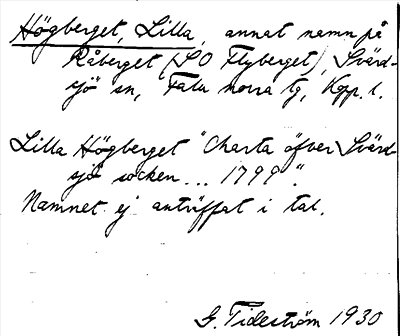 Högberget, Lilla, annat namn på
Råberget (SO Flyberget), Svärd-
sjö sn, Falu norra tg, Kpp. l.
Lilla Högberget "Charta öfver Svärd
sjö socken ... 1799".
Namnet ej anträffat i tal.
G. Tideström 1930